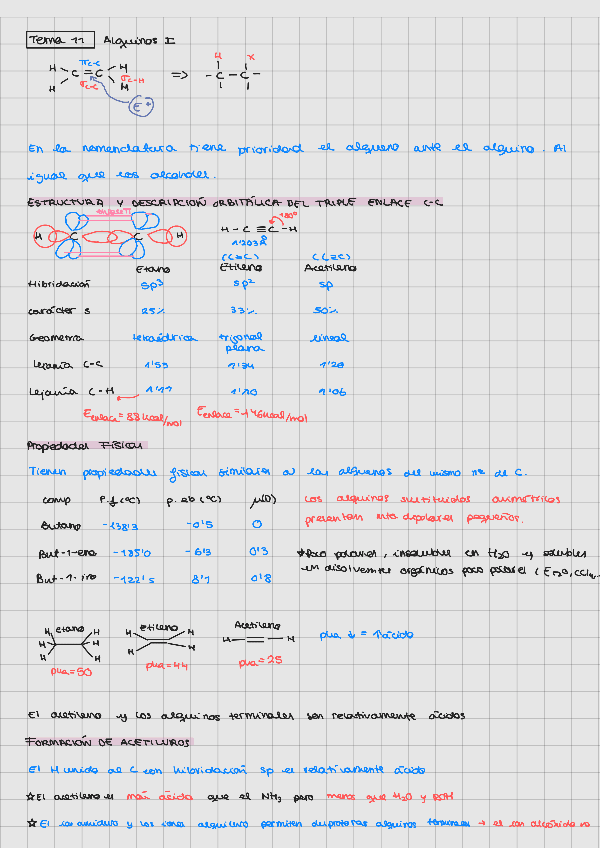 Tema 11 Alquinos I
H H πC-C C=C σC-C σC-H H H E+ => H X -C-C-
En la nomenclatura tiene prioridad el alqueno ante el alquino. Al
igual que los alcoholes.
ESTRUCTURA Y DESCRIPCIÓN ORBITÁLICA DEL TRIPLE ENLACE C-C
enlace π
H C C H H-C≡C-H 180º
1'203Å
(C=C) (C≡C)
Etano Etileno Acetileno
Hibridación sp³ sp² sp
carácter s 25% 33% 50%
Geometría tetraédrica trigonal plana lineal
Lejanía C-C 1'53 1'34 1'20
Lejanía C-H 1'11 1'10 1'06
Eenlace = 83 kcal/mol Eenlace = 146 kcal/mol
Propiedades Físicas
Tienen propiedades físicas similares a las alquenos del mismo nº de C.
comp P.f (ºC) p.eb (ºC) μ(D)
Butano -138'3 -0'5 0
But-1-eno -185'0 -6'3 0'3
But-1-ino -122'5 8'1 0'8
Los alquinos sustituidos asimétricos
presentan dipolares pequeños.
*Poco polares, insolubles en H₂O y solubles
en disolventes orgánicos poco polares (Et₂O, CCl₄
Etano Etileno Acetileno
H H H H H H H H H H H H
pka=50 pka=44 pka=25
pka ↓ = ↑ácido
El acetileno y los alquinos terminales son relativamente ácidos
FORMACIÓN DE ACETILUROS
El H unido al C con hibridación sp es relativamente ácido
☆El acetileno es más ácido que el NH₃ pero menos que H₂O y ROH
☆El ion amiduro y los iones alquiluro permiten desprotonar alquinos terminales → el ion alcóxido no